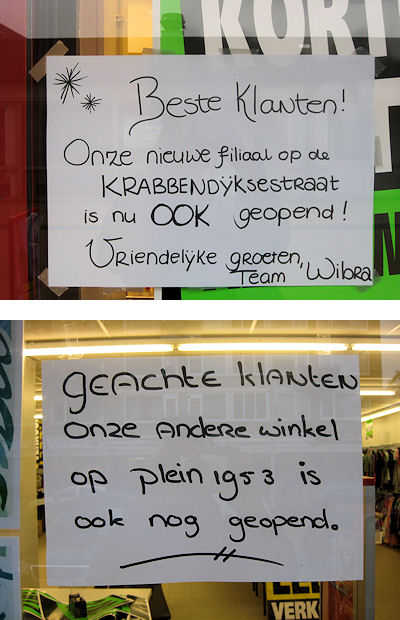 KORT
Beste Klanten!
Onze nieuwe filiaal op de
KRABBENDYKSESTRAAT
is nu OOK geopend!
Vriendelyke groeten,
Team Wibra
GEACHTE KLANTEN
ONZE ANDERE winkel
op plein 1953 is
ook nog geopend.
VERK